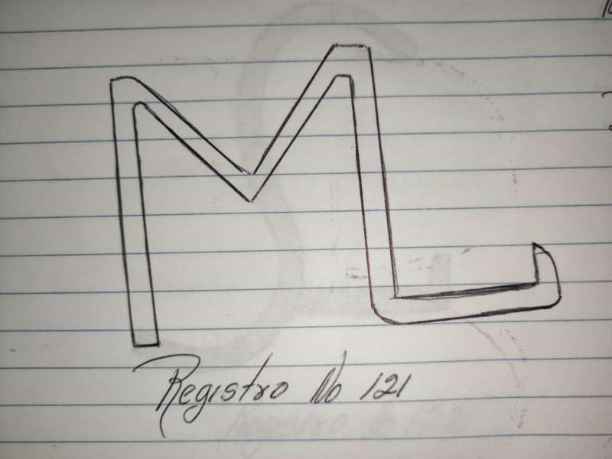 ML
Registro No 121